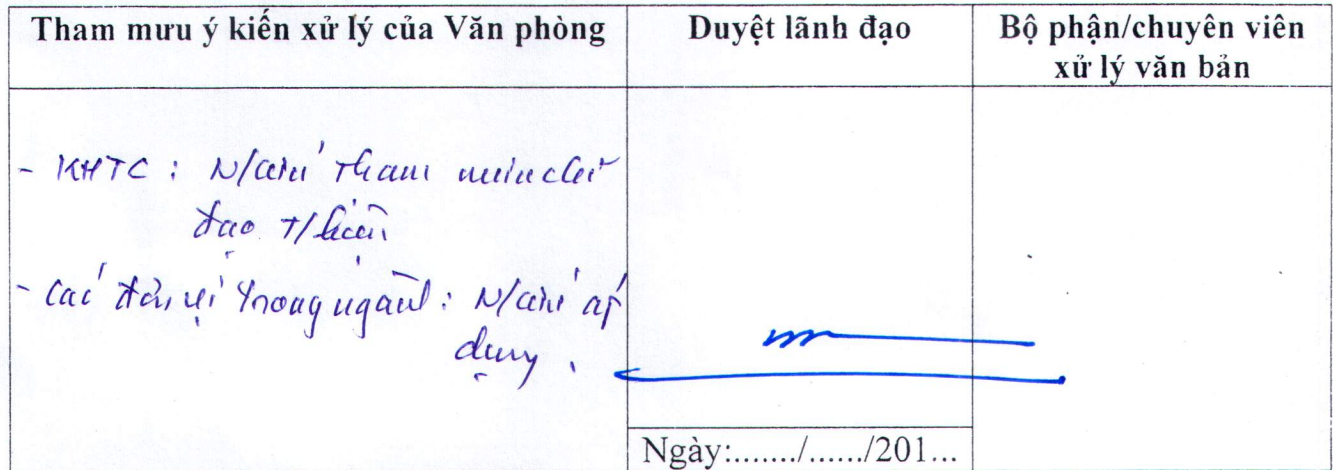 Tham mưu ý kiến xử lý của Văn phòng
Duyệt lãnh đạo
Bộ phận/chuyên viên
xử lý văn bản
- KHTC : N/cứu tham mưu chỉ
đạo T/hiện
- Các đơn vị trong ngành : N/cứu áp
dụng .
Ngày:......./....../201...